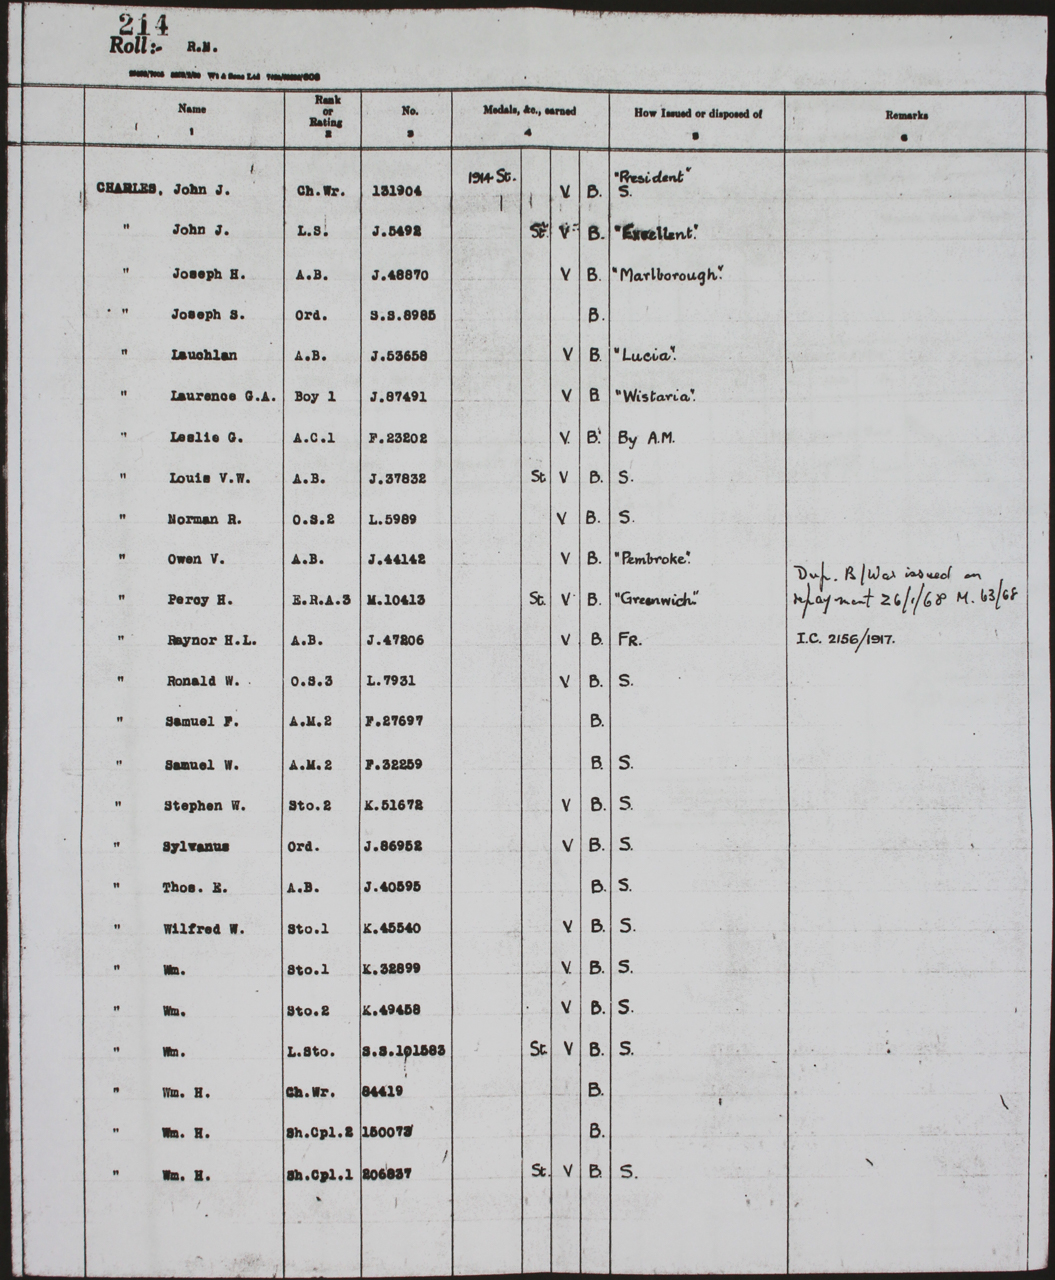 214
Roll:- R.N.
Wt & Sons Ltd
Name Rank or Rating No. Medals, &c., earned How Issued or disposed of Remarks
1 2 3 4 5 6
CHARLES, John J. Ch.Wr. 131904 1914 St. V B. "President" S.
" John J. L.S. J.5492 St. V B. "Excellent".
" Joseph H. A.B. J.48870 V B. "Marlborough".
" Joseph S. Ord. S.S.8985 B.
" Lauchlan A.B. J.53658 V B. "Lucia".
" Laurence G.A. Boy 1 J.87491 V B "Wistaria".
" Leslie G. A.C.1 F.23202 V. B. By A.M.
" Louis V.W. A.B. J.37832 St. V B. S.
" Norman R. O.S.2 L.5989 V B. S.
" Owen V. A.B. J.44142 V B. "Pembroke".
" Percy H. E.R.A.3 M.10413 St. V B. "Greenwich." Dup. B/War issued on
repayment 26/1/68 M. 63/68
" Raynor H.L. A.B. J.47206 V B. FR. I.C. 2156/1917.
" Ronald W. O.S.3 L.7931 V B. S.
" Samuel F. A.M.2 F.27697 B.
" Samuel W. A.M.2 F.32259 B. S.
" Stephen W. Sto.2 K.51672 V B. S.
" Sylvanus Ord. J.86952 V B. S.
" Thos. E. A.B. J.40595 B. S.
" Wilfred W. Sto.1 K.45540 V B. S.
" Wm. Sto.1 K.32899 V. B. S.
" Wm. Sto.2 K.49458 V B. S.
" Wm. L.Sto. S.S.101583 St. V B. S.
" Wm. H. Ch.Wr. 84419 B.
" Wm. H. Sh.Cpl.2 150073 B.
" Wm. H. Sh.Cpl.1 206837 St. V B. S.